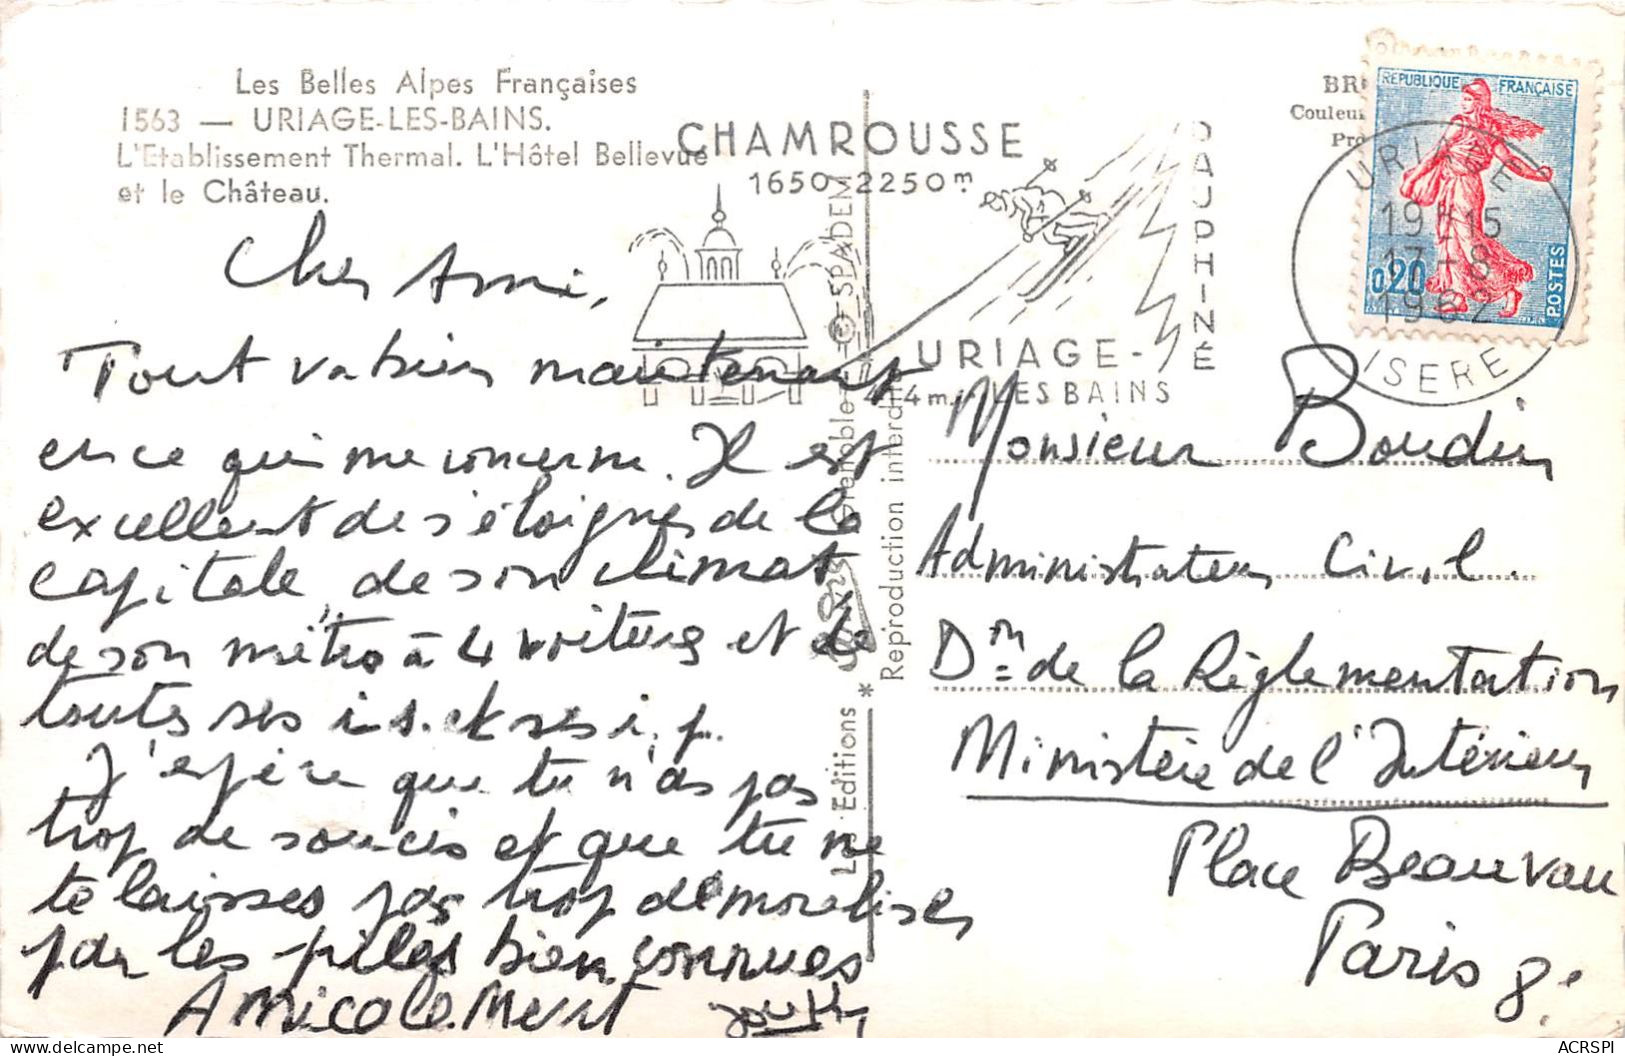 Les Belles Alpes Françaises
1563 — URIAGE-LES-BAINS.
L'Etablissement Thermal. L'Hôtel Bellevue
et le Château.
CHAMROUSSE
1650-2250m
DAUPHINÉ
URIAGE-
LES BAINS
414m.
REPUBLIQUE FRANÇAISE
0,20
POSTES
URIAGE
19H15
17-8
1962
ISERE
BR
Couleu
Pro
Cher Ami,
Tout va bien maintenant
en ce qui me concerne. Il est
excellent de s'éloigner de la
capitale, de son climat
de son métro à 4 voitures et de
toutes ses i.s. et ses i.p.
J'espère que tu n'as pas
trop de soucis et que tu ne
te laisses pas trop démoraliser
par les piles bien connues
Amicalement
Editions
Grenoble
© SPADEM
* Reproduction interdite
Monsieur Boudin
Administrateur Civil.
Dᵒⁿ de la Réglementation
Ministère de l'Intérieur
Place Beauvau
Paris 8ᵉ
ACRSPI